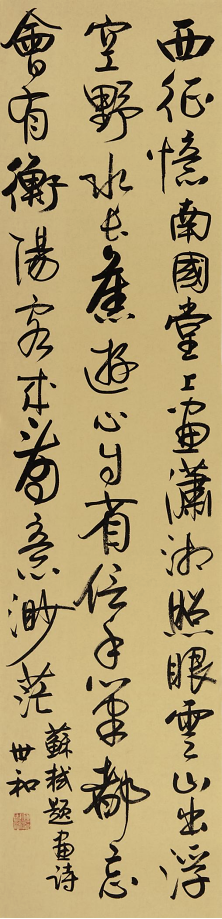 西征憶南國堂上畫瀟湘照眼雲山出浮
空野水長舊遊心自省信手筆都忘
會有衡陽客來看意渺茫
蘇軾題畫詩
世和